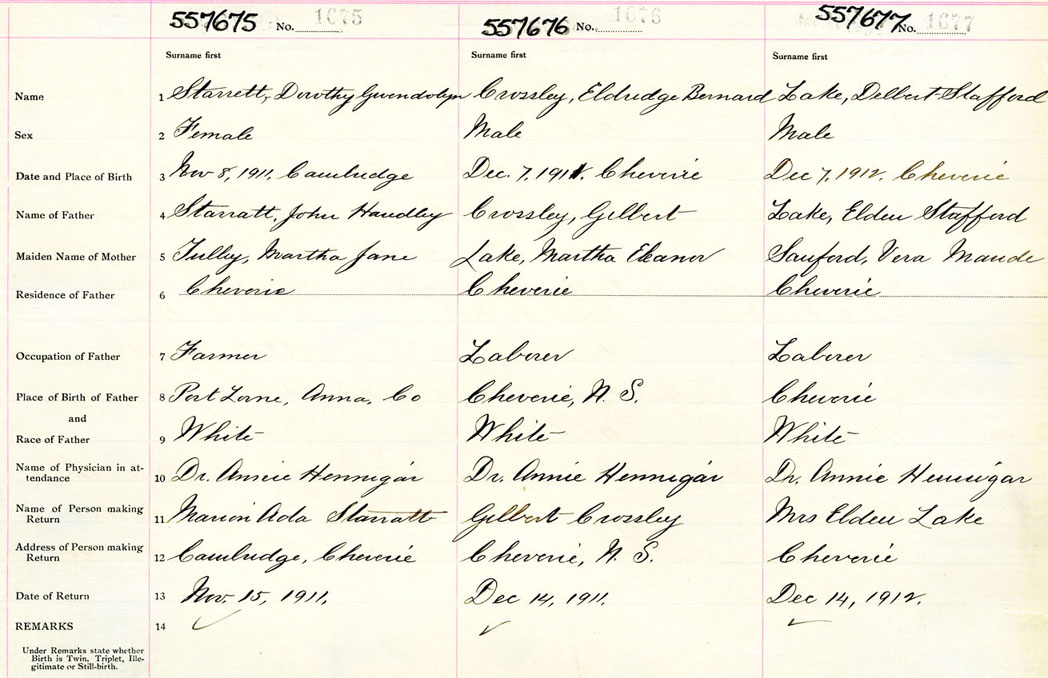 557675 No. 1675 557676 No. 1676 557677 No. 1677
Surname first Surname first Surname first
Name 1 Starrett, Dorothy Gwendolyn Crossley, Eldredge Bernard Lake, Delbert Stafford
Sex 2 Female Male Male
Date and Place of Birth 3 Nov 8, 1911, Cambridge Dec. 7, 1911. Cheverie Dec 7, 1912. Cheverie
Name of Father 4 Starratt, John Handley Crossley, Gilbert Lake, Elden Stafford
Maiden Name of Mother 5 Tulley, Martha Jane Lake, Martha Eleanor Sanford, Vera Maude
Residence of Father 6 Cheverie Cheverie Cheverie
Occupation of Father 7 Farmer Laborer Laborer
Place of Birth of Father 8 Port Lorne, Anna, Co Cheverie, N. S. Cheverie
and
Race of Father 9 White White White
Name of Physician in at- 10 Dr. Annie Hennigar Dr. Annie Hennigar Dr. Annie Hennigar
tendance
Name of Person making 11 Marion Ada Starratt Gilbert Crossley Mrs Elden Lake
Return
Address of Person making 12 Cambridge, Cheverie Cheverie, N. S. Cheverie
Return
Date of Return 13 Nov. 15, 1911, Dec 14, 1911. Dec 14, 1912.
REMARKS 14
Under Remarks state whether
Birth is Twin, Triplet, Ille-
gitimate or Still-birth.